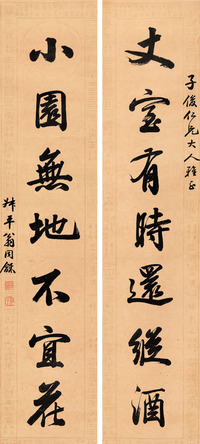 丈室有時還縱酒
子俊仁兄大人雅正
小園無地不宜花
叔平翁同龢